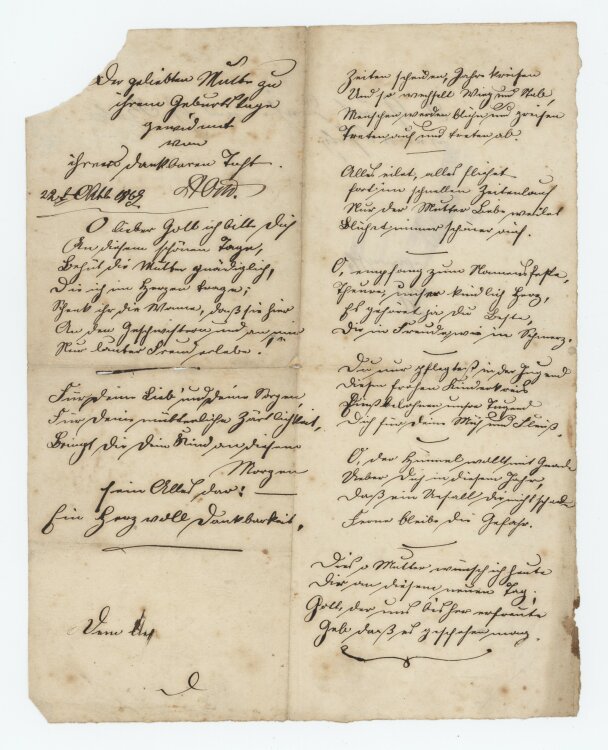 Der geliebten Mutter zu
ihrem Geburtstage
gewidmet
von
ihrer dankbaren Tocht.
22. Oktb. 1868
O lieber Gott ich bitt Dich
An diesem schönen Tage,
Behüt die Mutter gnädiglich,
Die ich im Herzen trage;
Schenk ihr die Wonne, daß sie hier
An den Geschwistern und an mir
Nur lauter Freud erlebe!
Für Deine Lieb und Deine Sorgen,
Für Deine mütterliche Zärtlichkeit,
Bringt dir Dein Kind an diesem
Morgen
sein Alles dar! –
Ein Herz voll Dankbarkeit.
Dem
D
Zeiten scheiden, Jahre kreisen
Und so wechselt Wieg und Stab,
Menschen werden blühn und greisen
Treten auf und treten ab.
Alles eilet, alles fliehet
fort im schnellen Zeitenlauf
Nur der Mutter Liebe
Blühet immer schöner auf.
O, empfang zum Namensfeste,
Theure, unser kindlich Herz,
Es gehöret ja du Beste,
Dir in Freude, wie im Schmerz.
Du nur pflegtest in der Jugend
Diesen frohen Kinderkreis
unsre Tugend
Dich für Deine Müh und Fleiß.
O, der Himmel wallt mit Gnade
Ueber Dich in diesem Jahr,
Daß ein Unfall dir nicht schade
Ferne bleibe die Gefahr.
Dies o Mutter wünsch ich heute
Dir an diesem neuen Tag;
Gott, der uns bisher erfreute
Geb daß es geschehen mag.